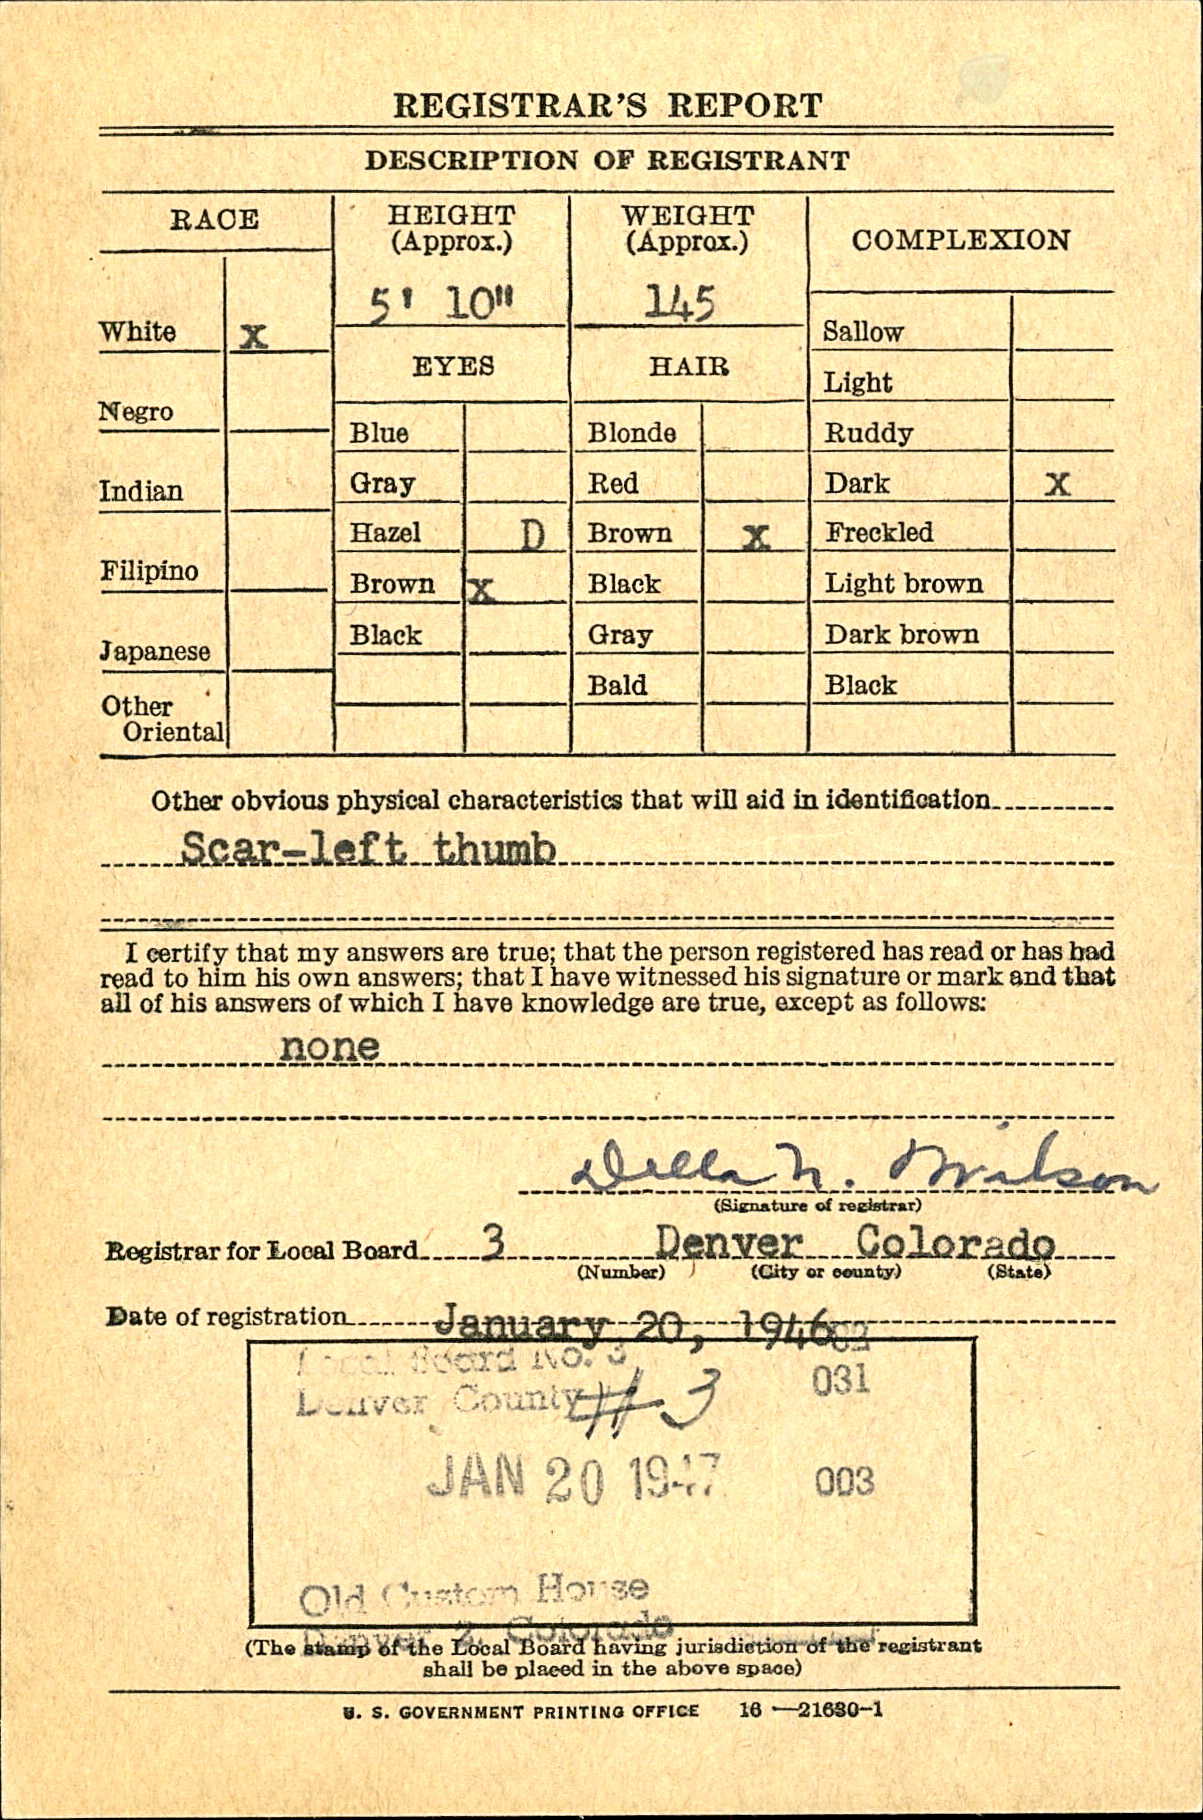 REGISTRAR'S REPORT
DESCRIPTION OF REGISTRANT
RACE
HEIGHT
(Approx.)
WEIGHT
(Approx.)
COMPLEXION
5' 10"
145
White X
Sallow
EYES
HAIR
Light
Negro
Blue
Blonde
Ruddy
Indian
Gray
Red
Dark X
Hazel D
Brown X
Freckled
Filipino
Brown X
Black
Light brown
Japanese
Black
Gray
Dark brown
Bald
Black
Other
Oriental
Other obvious physical characteristics that will aid in identification
Scar-left thumb
I certify that my answers are true; that the person registered has read or has had
read to him his own answers; that I have witnessed his signature or mark and that
all of his answers of which I have knowledge are true, except as follows:
none
Della N. Wilson
(Signature of registrar)
Registrar for Local Board 3 Denver Colorado
(Number) (City or county) (State)
Date of registration January 20, 1946
Local Board No. 3
031
Denver County #3
JAN 20 1947 003
Old Custom House
Denver 2, Colorado
(The stamp of the Local Board having jurisdiction of the registrant
shall be placed in the above space)
U. S. GOVERNMENT PRINTING OFFICE 16—21630-1